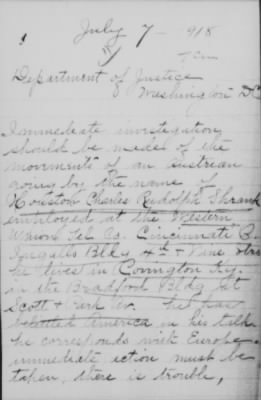 July 7 - 918
Department of Justice
Washington DC
Immediate investigation
should be mades of the
movements of an Austrean
going by the name of
Houston Charles Rudolph Shrank
employed at the Western
Union Tel Co. Cincinnati O
Ingalls Bldg 4th + Vine Strs
he lives in Covington Ky.
in the Bradford Bldg at
Scott + Park Sts. he has
America in his talk
he corresponds with Europe
immediate action must be
taken, there is trouble,